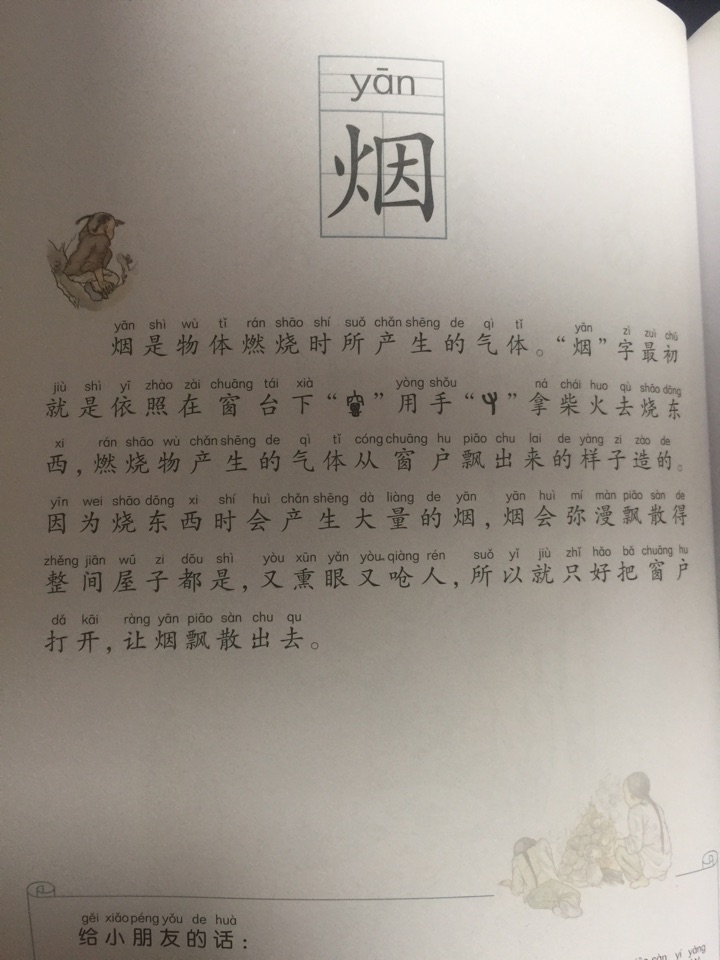 yān
烟
yān shì wù tǐ rán shāo shí suǒ chǎn shēng de qì tǐ yān zì zuì chū
烟是物体燃烧时所产生的气体。“烟”字最初
jiù shì yī zhào zài chuāng tái xià yòng shǒu ná chái huo qù shāo dōng
就是依照在窗台下“”用手“”拿柴火去烧东
xi rán shāo wù chǎn shēng de qì tǐ cóng chuāng hu piāo chu lai de yàng zi zào de
西，燃烧物产生的气体从窗户飘出来的样子造的。
yīn wei shāo dōng xi shí huì chǎn shēng dà liàng de yān yān huì mí màn piāo sàn de
因为烧东西时会产生大量的烟，烟会弥漫飘散得
zhěng jiān wū zi dōu shì yòu xūn yǎn yòu qiàng rén suǒ yǐ jiù zhǐ hǎo bǎ chuāng hu
整间屋子都是，又熏眼又呛人，所以就只好把窗户
dǎ kāi ràng yān piāo sàn chu qu
打开，让烟飘散出去。
gěi xiǎo péng yǒu de huà
给小朋友的话：